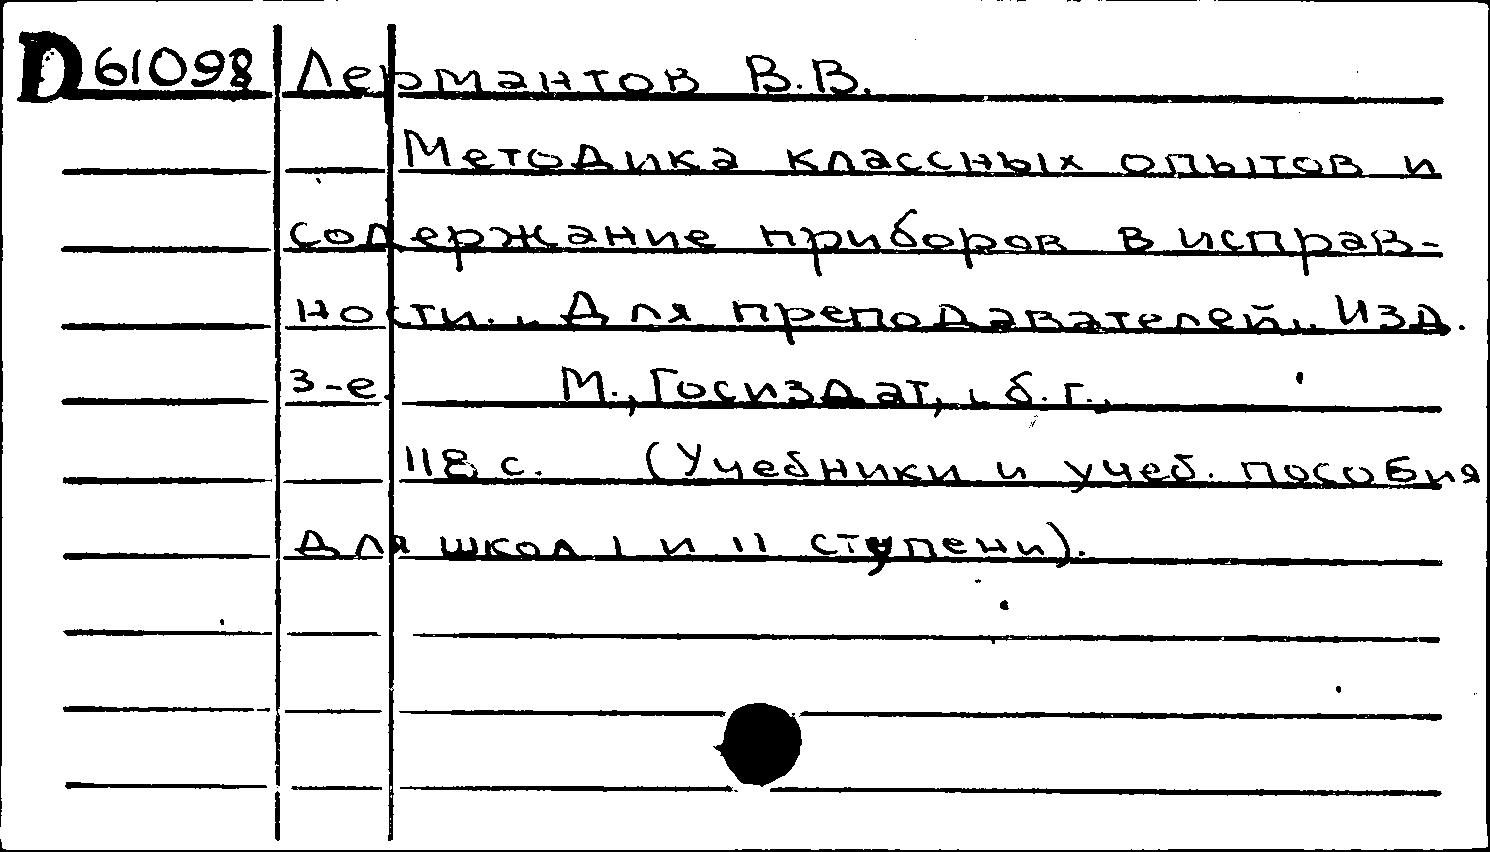 D 61098 Лермантов В.В.
Методика классных опытов и
содержание приборов в исправ-
ности... Для преподавателей.. Изд.
3-е. М., Госиздат, . б. г.,
118 с. (Учебники и учеб. пособия
для школ I и II ступени).